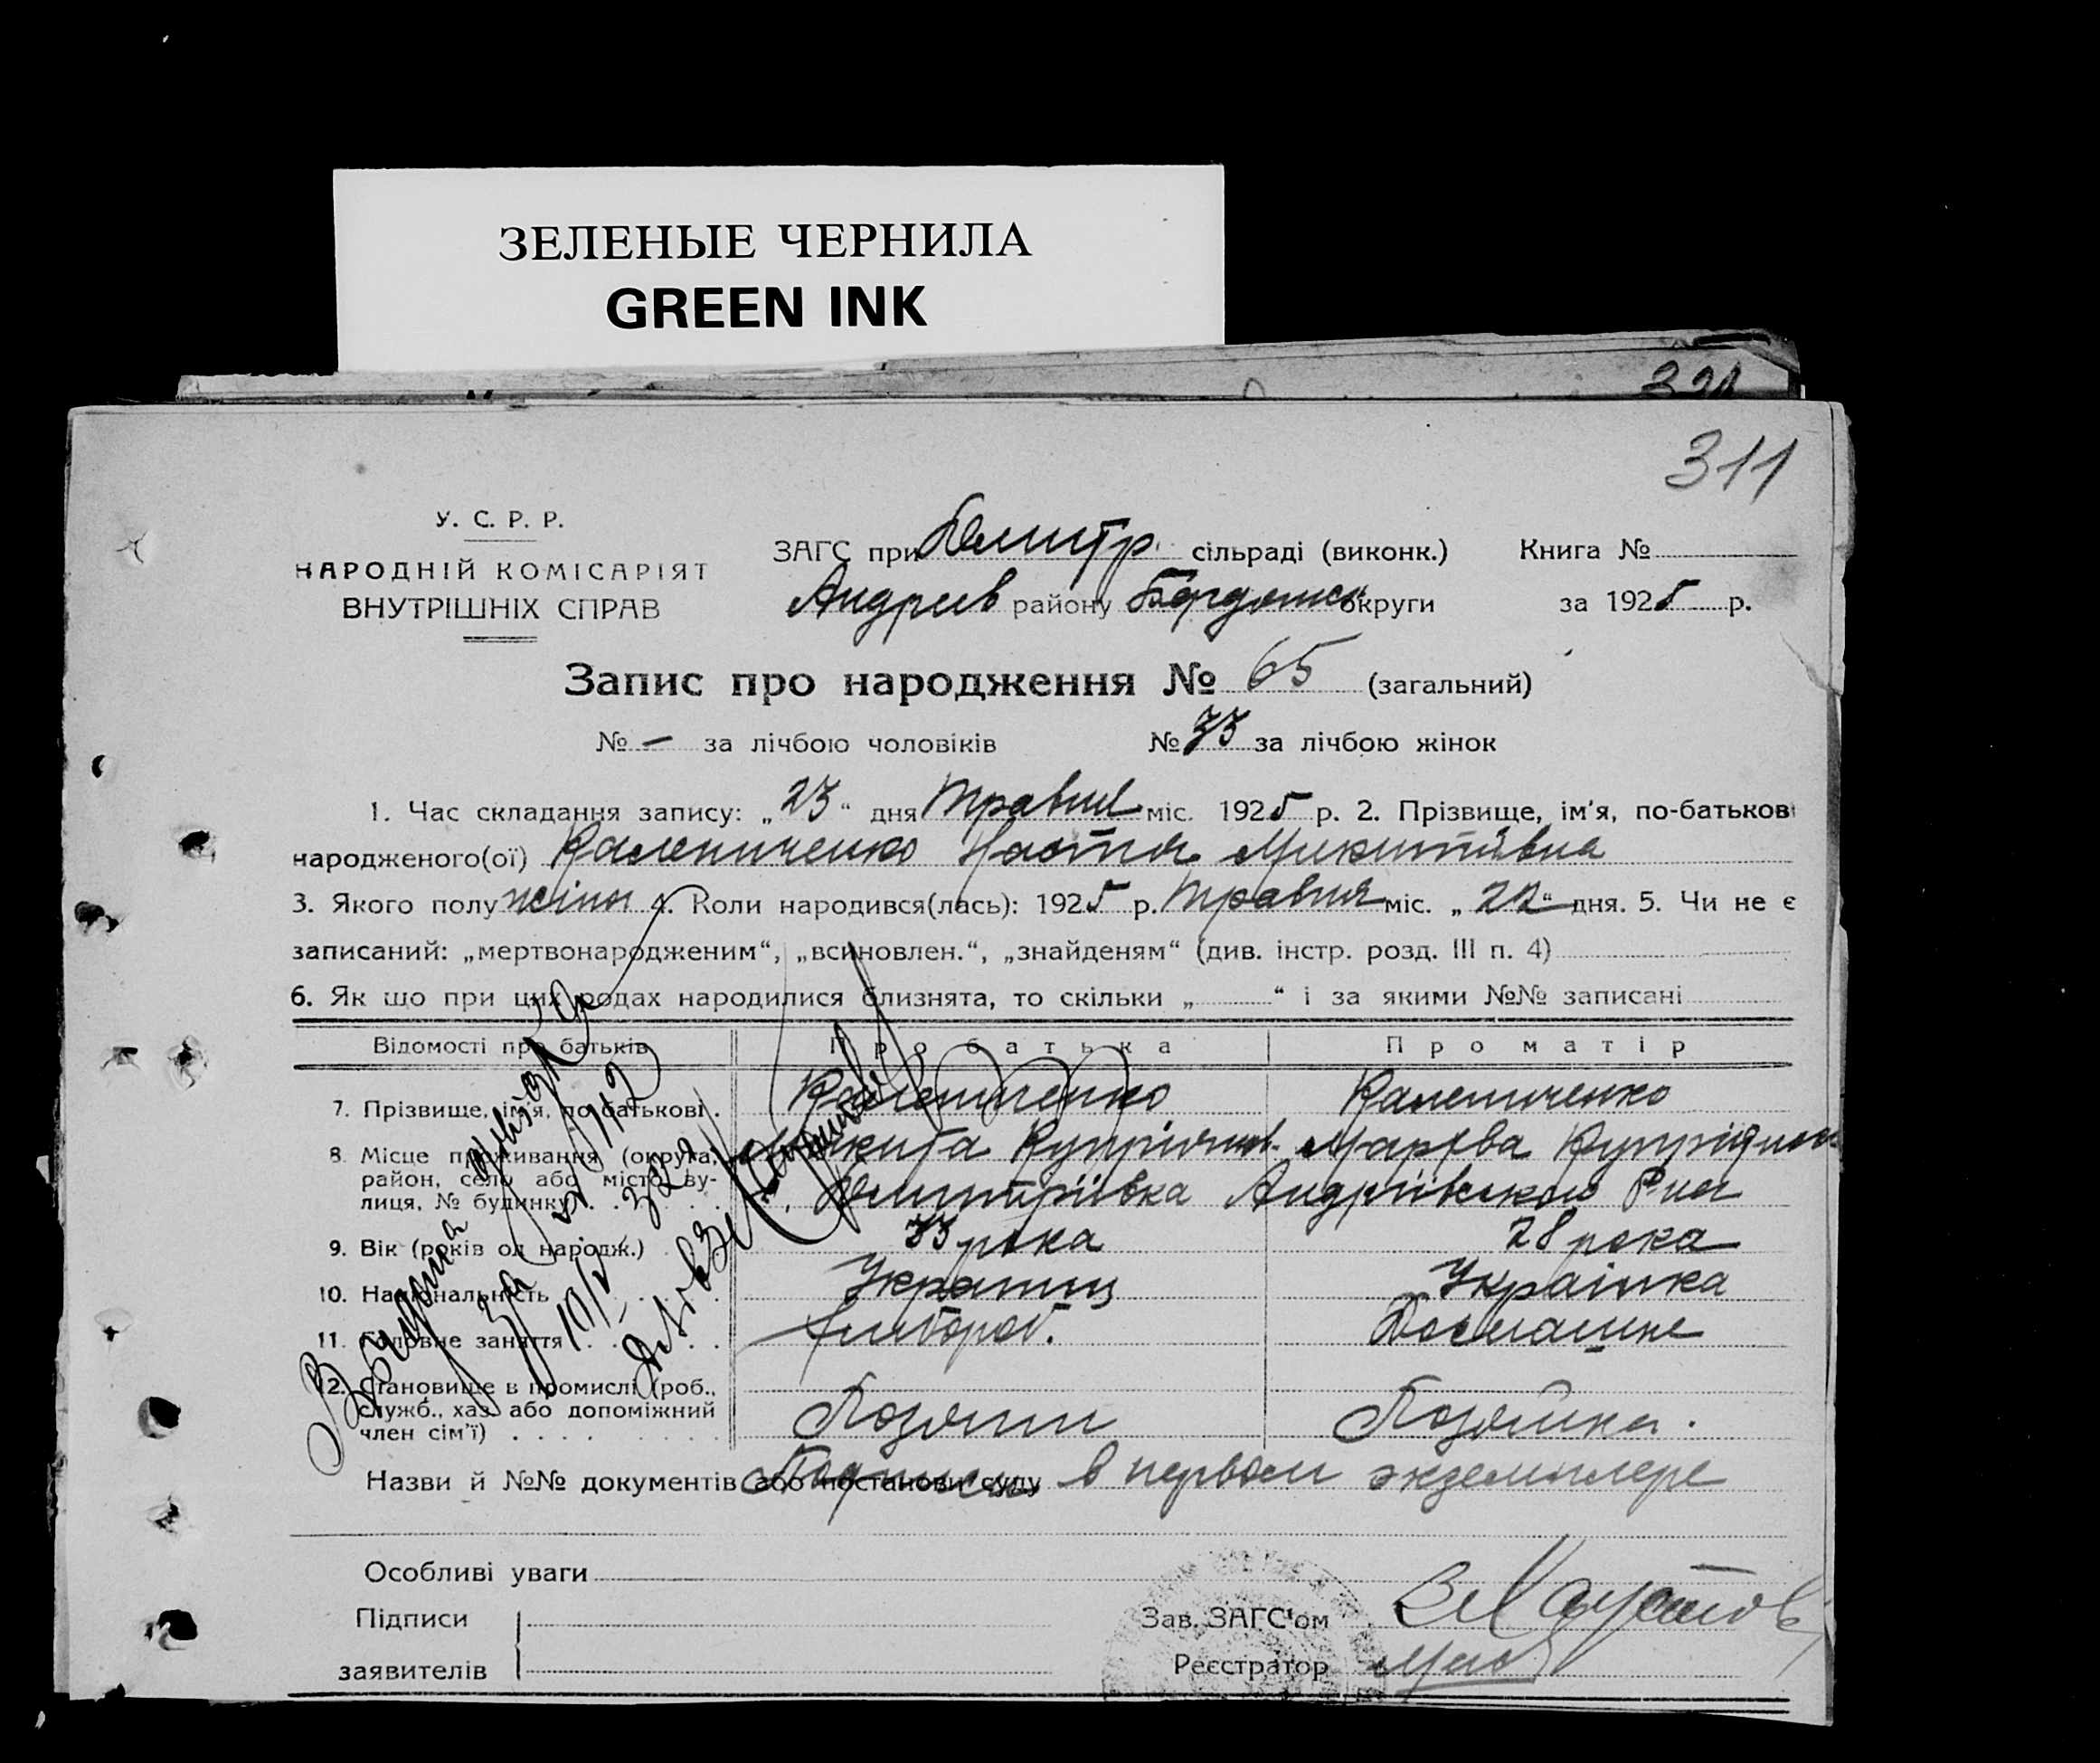 ЗЕЛЕНЫЕ ЧЕРНИЛА
GREEN INK
321
311
У. С. Р. Р.
НАРОДНІЙ КОМІСАРІЯТ
ВНУТРІШНІХ СПРАВ
ЗАГС при Дмитр. сільраді (виконк.) Книга №
Андреев району Бердянськ округи за 1925 р.
Запис про народження № 65 (загальний)
№ — за лічбою чоловіків № 33 за лічбою жінок
1. Час складання запису: „23“ дня Травня міс. 1925 р. 2. Прізвище, ім'я, по-батькові
народженого(ої) Калениченко Настя Микитівна
3. Якого полу жіноч 4. Коли народився(лась): 1925 р. Травня міс. „22“ дня. 5. Чи не є
записаний: „мертвонародженим“, „всиновлен.“, „знайденям“ (див. інстр. розд. III п. 4)
6. Як що при цих родах народилися близнята, то скільки „ “ і за якими №№ записані
Відомості про батьків Про батька Про матір
7. Прізвище, ім'я, по-батькові. Калениченко Калениченко
8. Місце проживання (округа, Микита Марфа
район, село або місто, ву- Дмитріівка Андріівского Р-на
лиця, № будинку)
9. Вік (років од народж.) 33 рока 28 рока
10. Національність Украінец Украінка
11. Головне заняття Хлібороб. Домашне
12. Становище в промислі (роб.,
служб., хаз. або допоміжний Хозяин Хозяйка.
член сім'ї)
Назви й №№ документів або постанови суду Подписи в первом экземпляре
Особливі уваги
Підписи
заявителів
Зав. ЗАГС'ом
Реєстратор